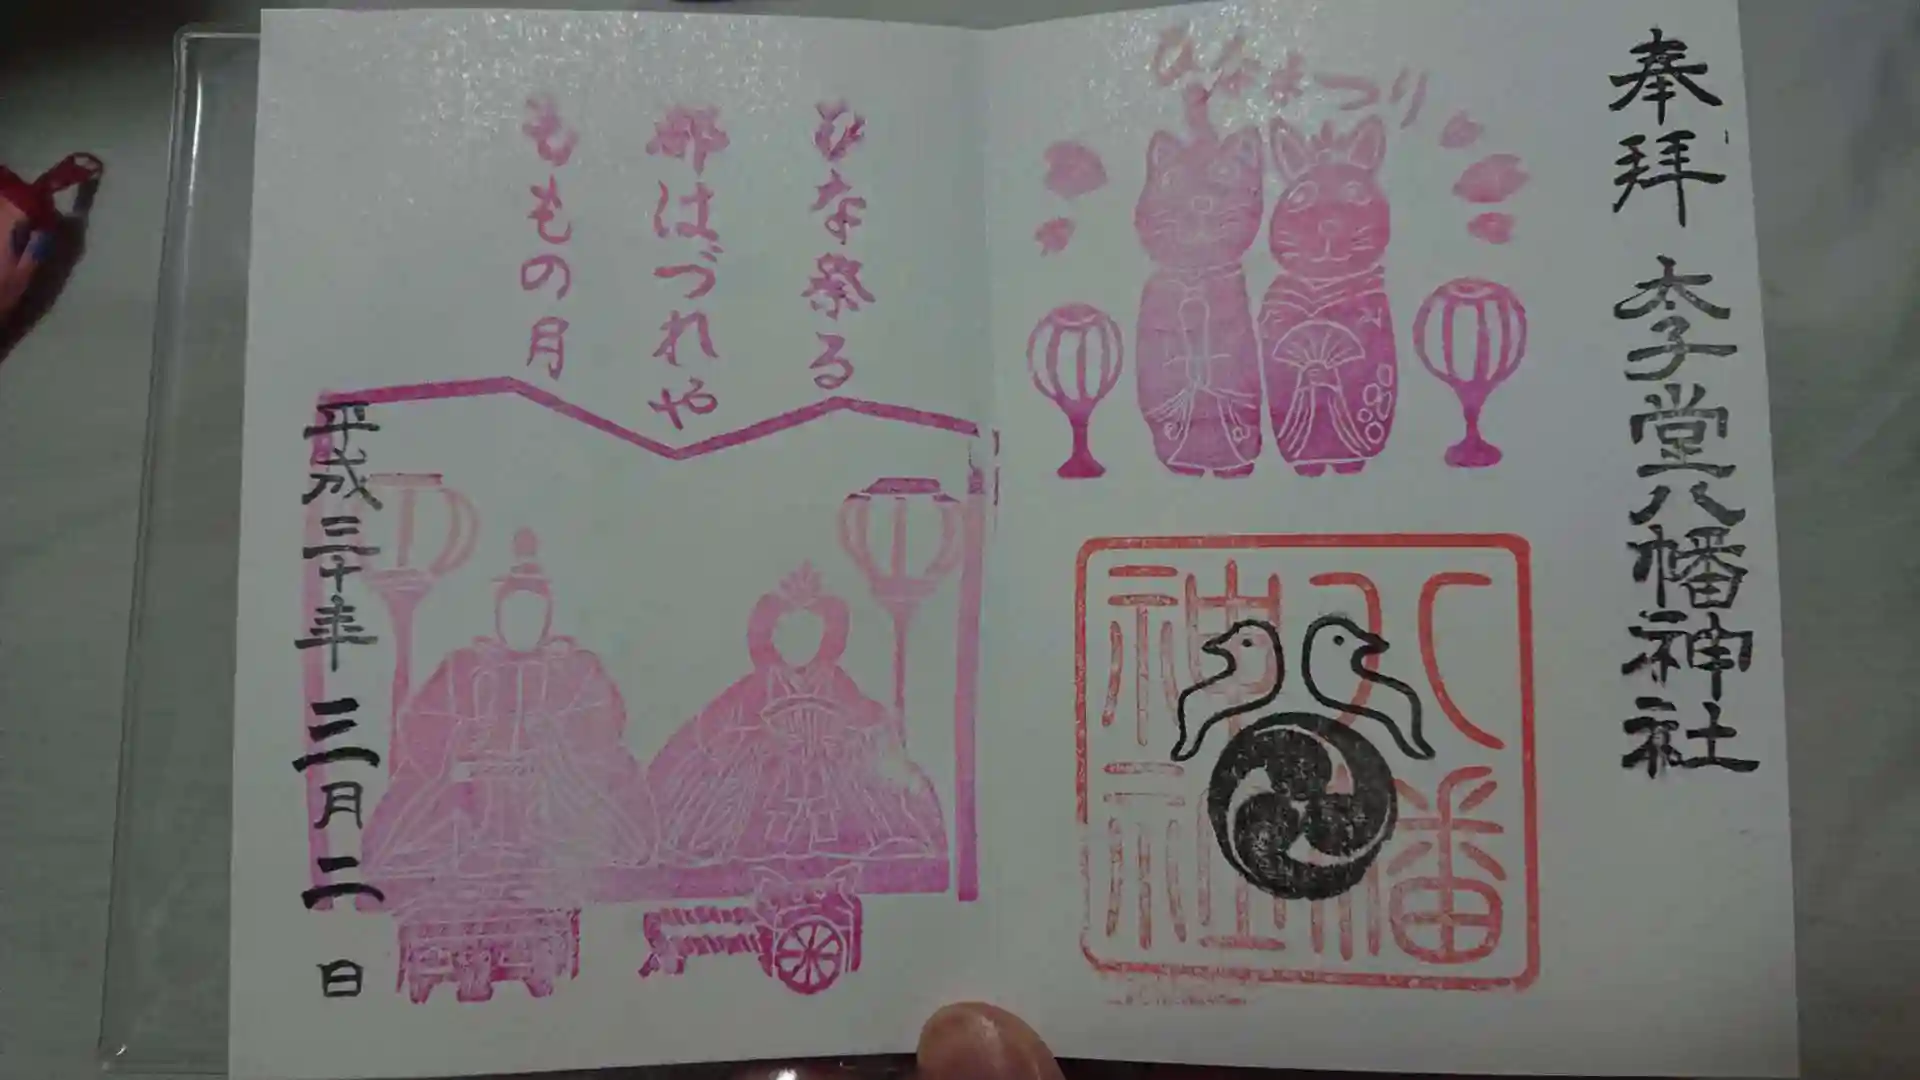 奉拝 太子堂八幡神社
ひなまつり
八幡
神社
ひな祭る
都はづれや
ももの月
平成三十年三月二日